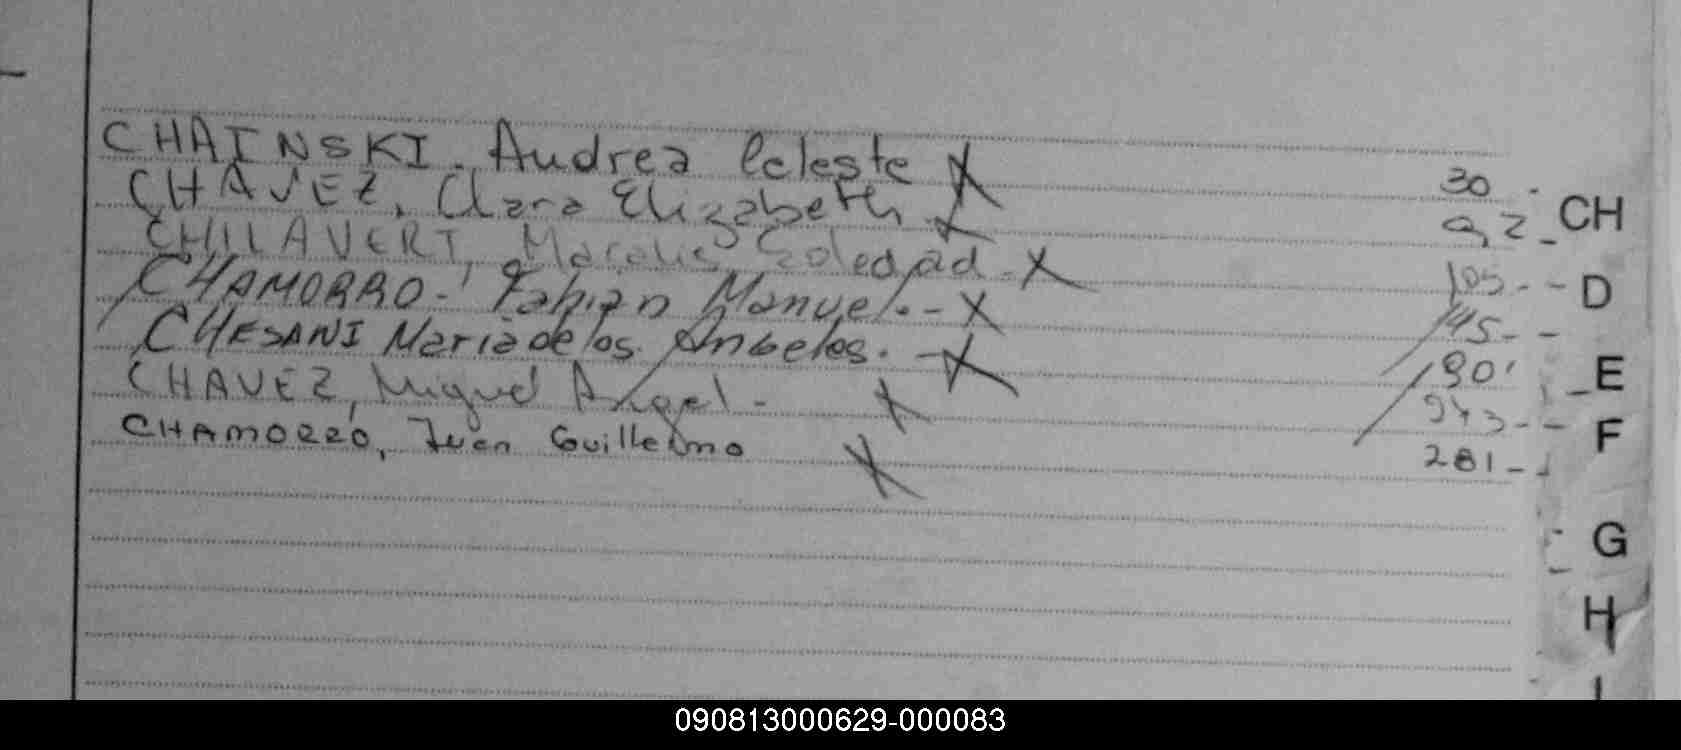 CHAINSKI. Andrea Celeste X 30 -
CHAVEZ, Clara Elizabeth X 92 -
CHILAVERT, Maralis Soledad - X 105 - -
CHAMORRO - Fabian Manuel. - X 145 - -
CHESANI Maria de los Angeles. - X 90
CHAVEZ, Miguel Angel - X 943 - -
CHAMORRO, Juan Guillermo X 281 -
CH
D
E
F
G
H
I
090813000629-000083